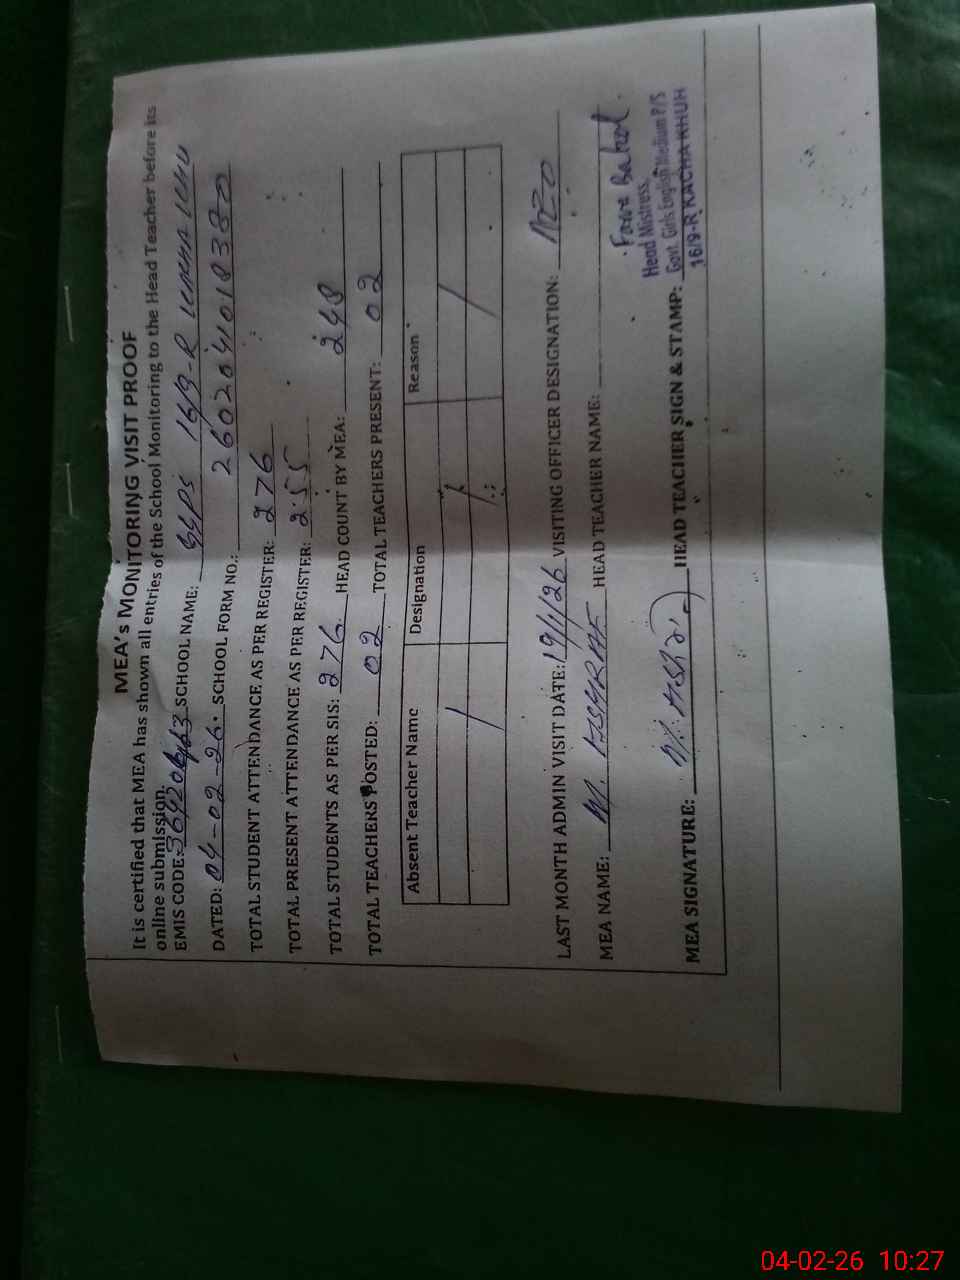 MEA's MONITORING VISIT PROOF
It is certified that MEA has shown all entries of the School Monitoring to the Head Teacher before its
online submission.
EMIS CODE: SCHOOL NAME: GGPS 16/9-R KACHA KHU
DATED: 04-02-26. SCHOOL FORM NO.: 26020401838
TOTAL STUDENT ATTENDANCE AS PER REGISTER: 276
TOTAL PRESENT ATTENDANCE AS PER REGISTER: 255
TOTAL STUDENTS AS PER SIS: 276. HEAD COUNT BY MEA: 248
TOTAL TEACHERS POSTED: 02 TOTAL TEACHERS PRESENT: 02
Absent Teacher Name Designation Reason
LAST MONTH ADMIN VISIT DATE: 19/1/26 VISITING OFFICER DESIGNATION:
MEA NAME: M. ASHRAF HEAD TEACHER NAME:
Batool
Head Mistress,
Govt. Girls English Medium P/S
16/9-R KACHA KHUH
MEA SIGNATURE: HEAD TEACHER SIGN & STAMP:
04-02-26 10:27